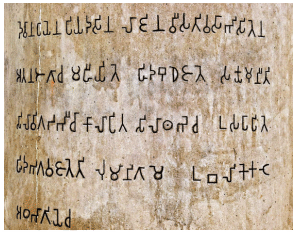 𑀤𑁂𑀯𑀸𑀦𑀧𑀺𑀬𑁂𑀦 𑀧𑀺𑀬𑀤𑀲𑀺𑀦 𑀮𑀸𑀚𑀺𑀦 𑀯𑀻𑀲𑀢𑀺𑀯𑀲𑀸𑀪𑀺𑀲𑀺𑀢𑁂𑀦
𑀅𑀢𑀦 𑀆𑀕𑀸𑀘 𑀫𑀳𑀻𑀬𑀺𑀢𑁂 𑀳𑀺𑀤 𑀩𑀼𑀥𑁂 𑀚𑀸𑀢𑁂 𑀲𑀓𑁆𑀬𑀫𑀼𑀦𑀻 𑀢𑀺
𑀲𑀺𑀮𑀸 𑀯𑀺𑀕𑀥𑀪𑀺 𑀘𑀸 𑀓𑀸𑀮𑀸𑀧𑀺𑀢 𑀲𑀺𑀮𑀸𑀣𑀪𑁂 𑀘 𑀉𑀲𑀧𑀸𑀧𑀺𑀢𑁂
𑀳𑀺𑀤 𑀪𑀕𑀯𑀁 𑀚𑀸𑀢𑁂 𑀢𑀺 𑀮𑀼𑀁𑀫𑀺𑀦𑀺 𑀕𑀸𑀫𑁂 𑀉𑀩𑀮𑀺𑀓𑁂 𑀓𑀝𑁂
𑀅𑀞𑀪𑀸𑀕𑀺𑀬𑁂 𑀘